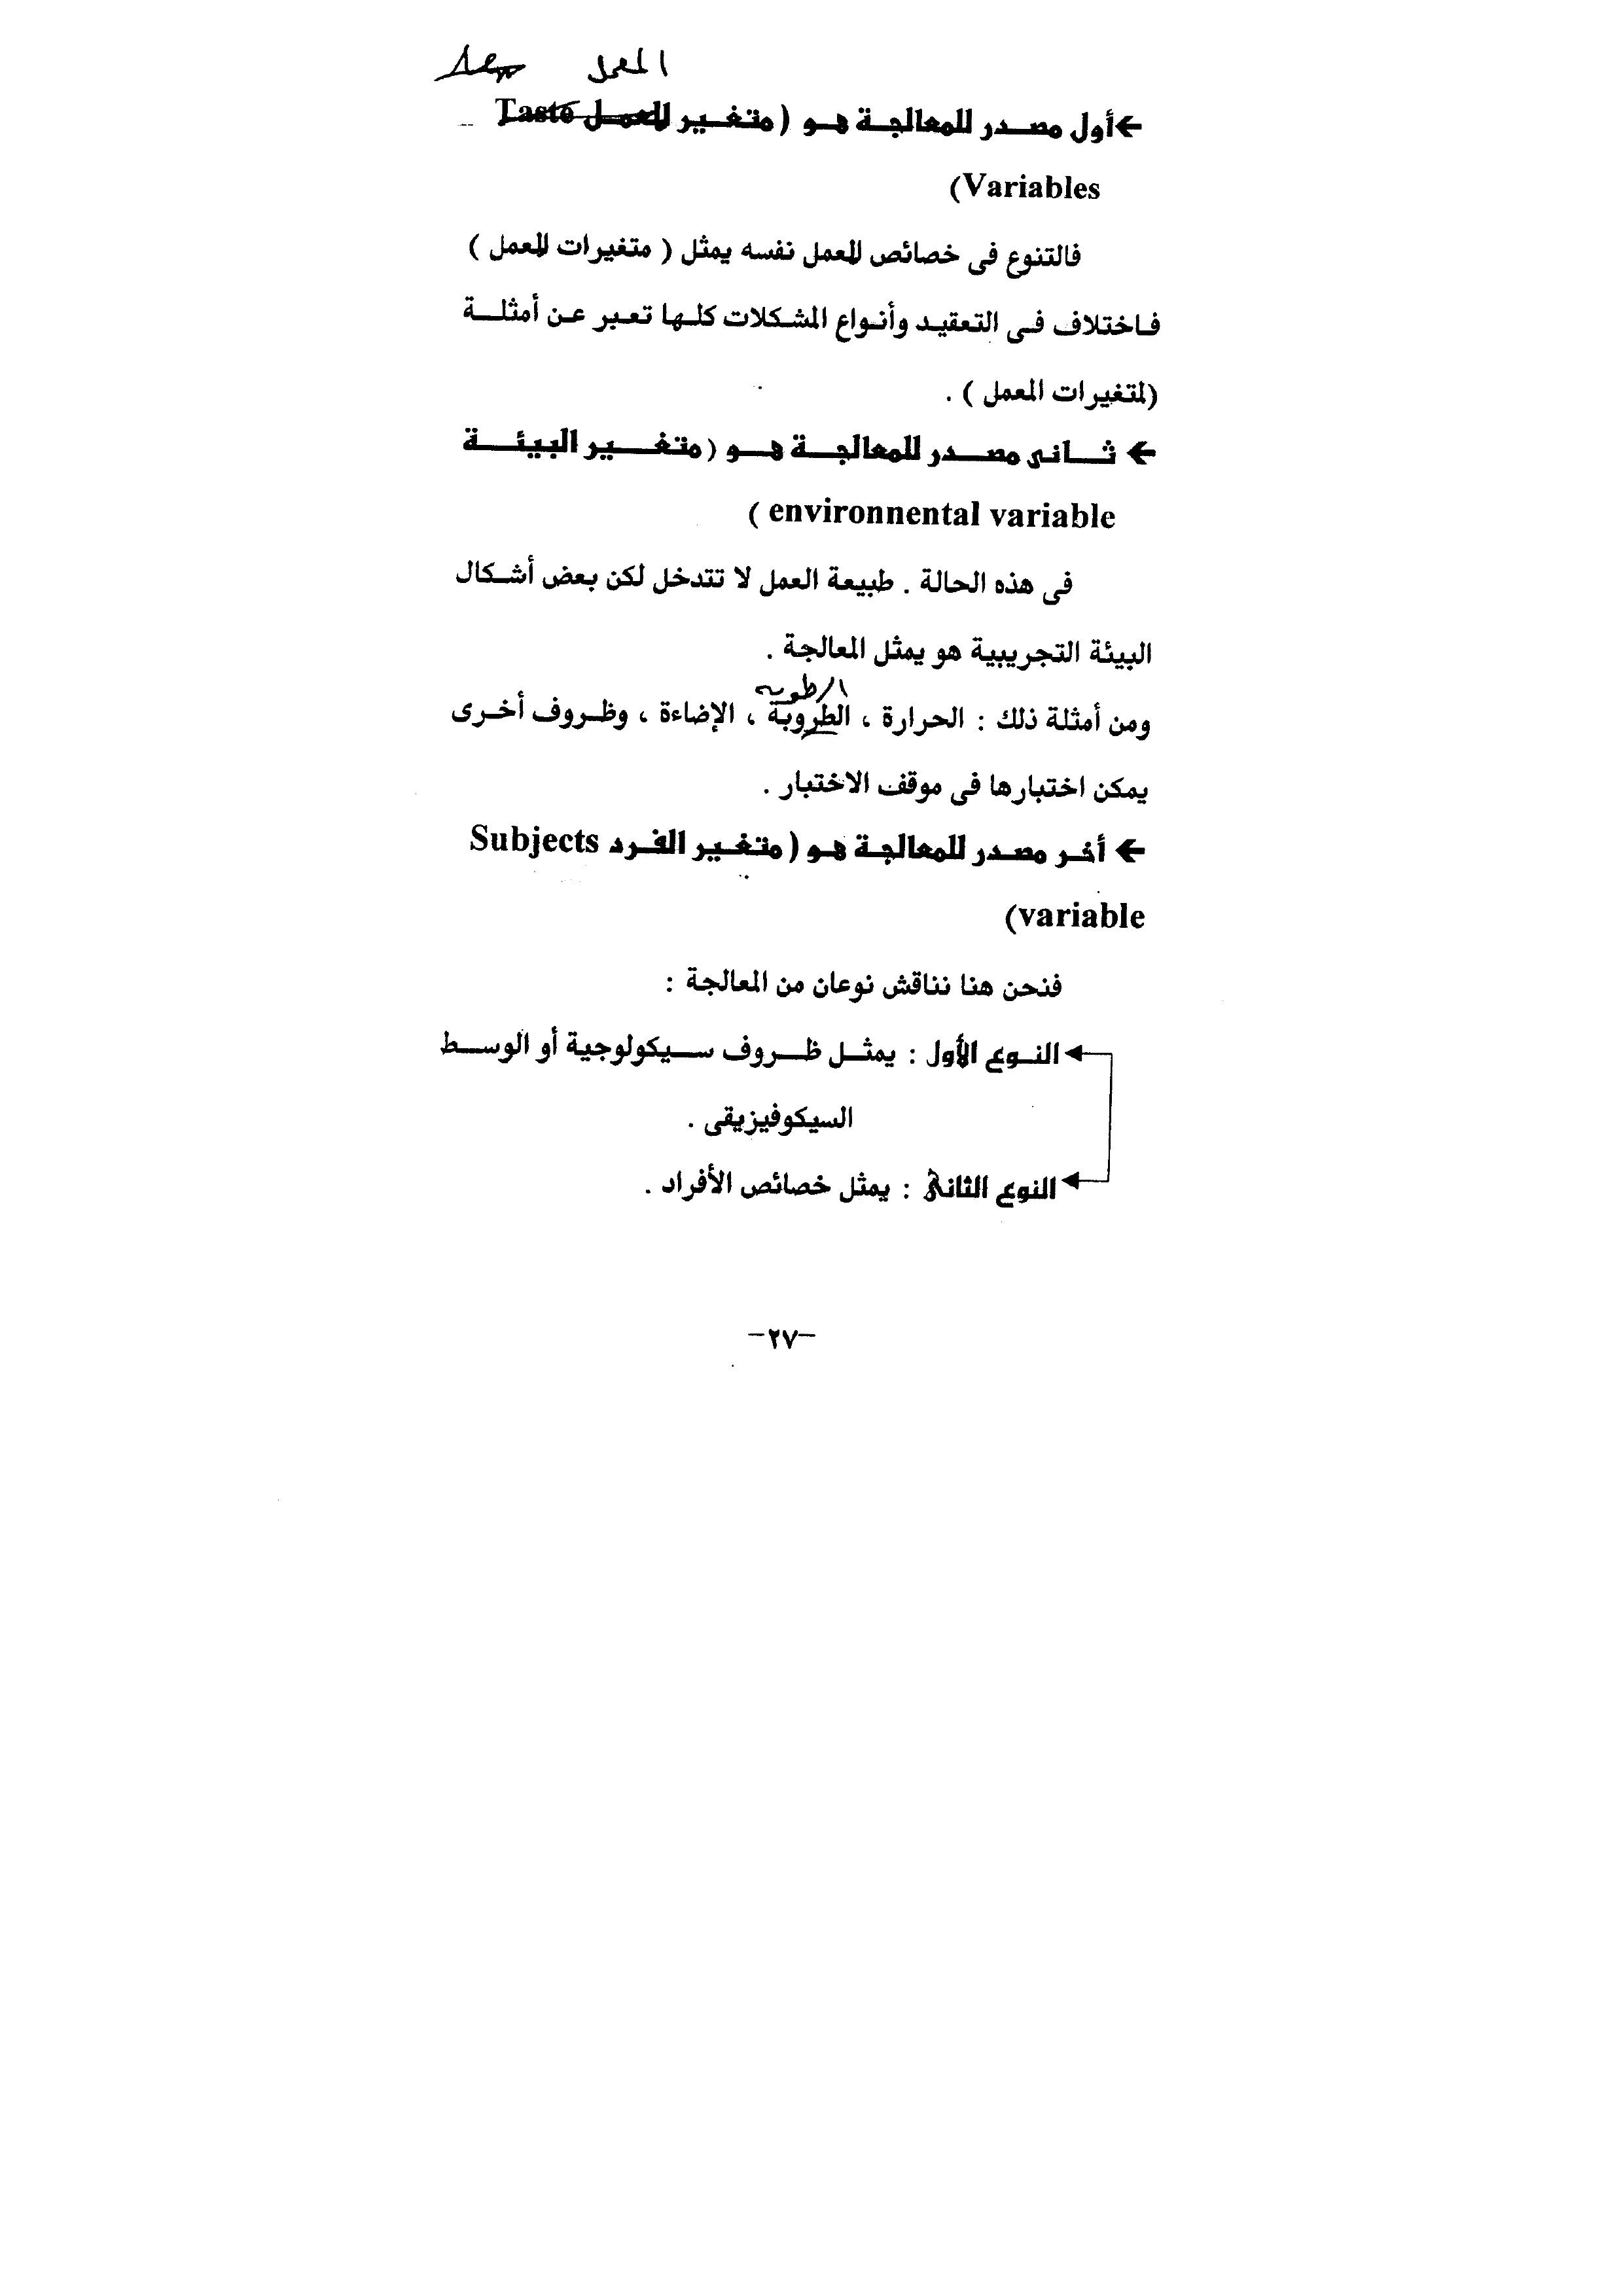 المعمل
←أول مصدر للمعالجة هو ( متغير للعمل Taste
Variables)
فالتنوع فى خصائص للعمل نفسه يمثل ( متغيرات للعمل )
فاختلاف فى التعقيد وأنواع المشكلات كلها تعبر عن أمثلة
(لمتغيرات المعمل ) .
← ثانى مصدر للمعالجة هو ( متغير البيئة
environnental variable )
فى هذه الحالة . طبيعة العمل لا تتدخل لكن بعض أشكال
البيئة التجريبية هو يمثل المعالجة .
الرطوبة
ومن أمثلة ذلك : الحرارة ، الطروبة ، الإضاءة ، وظروف أخرى
يمكن اختبارها فى موقف الاختبار .
← أخر مصدر للمعالجة هو ( متغير الفرد Subjects
variable)
فنحن هنا نناقش نوعان من المعالجة :
النوع الأول : يمثل ظروف سيكولوجية أو الوسط
السيكوفيزيقى .
النوع الثانى : يمثل خصائص الأفراد .
-٢٧-